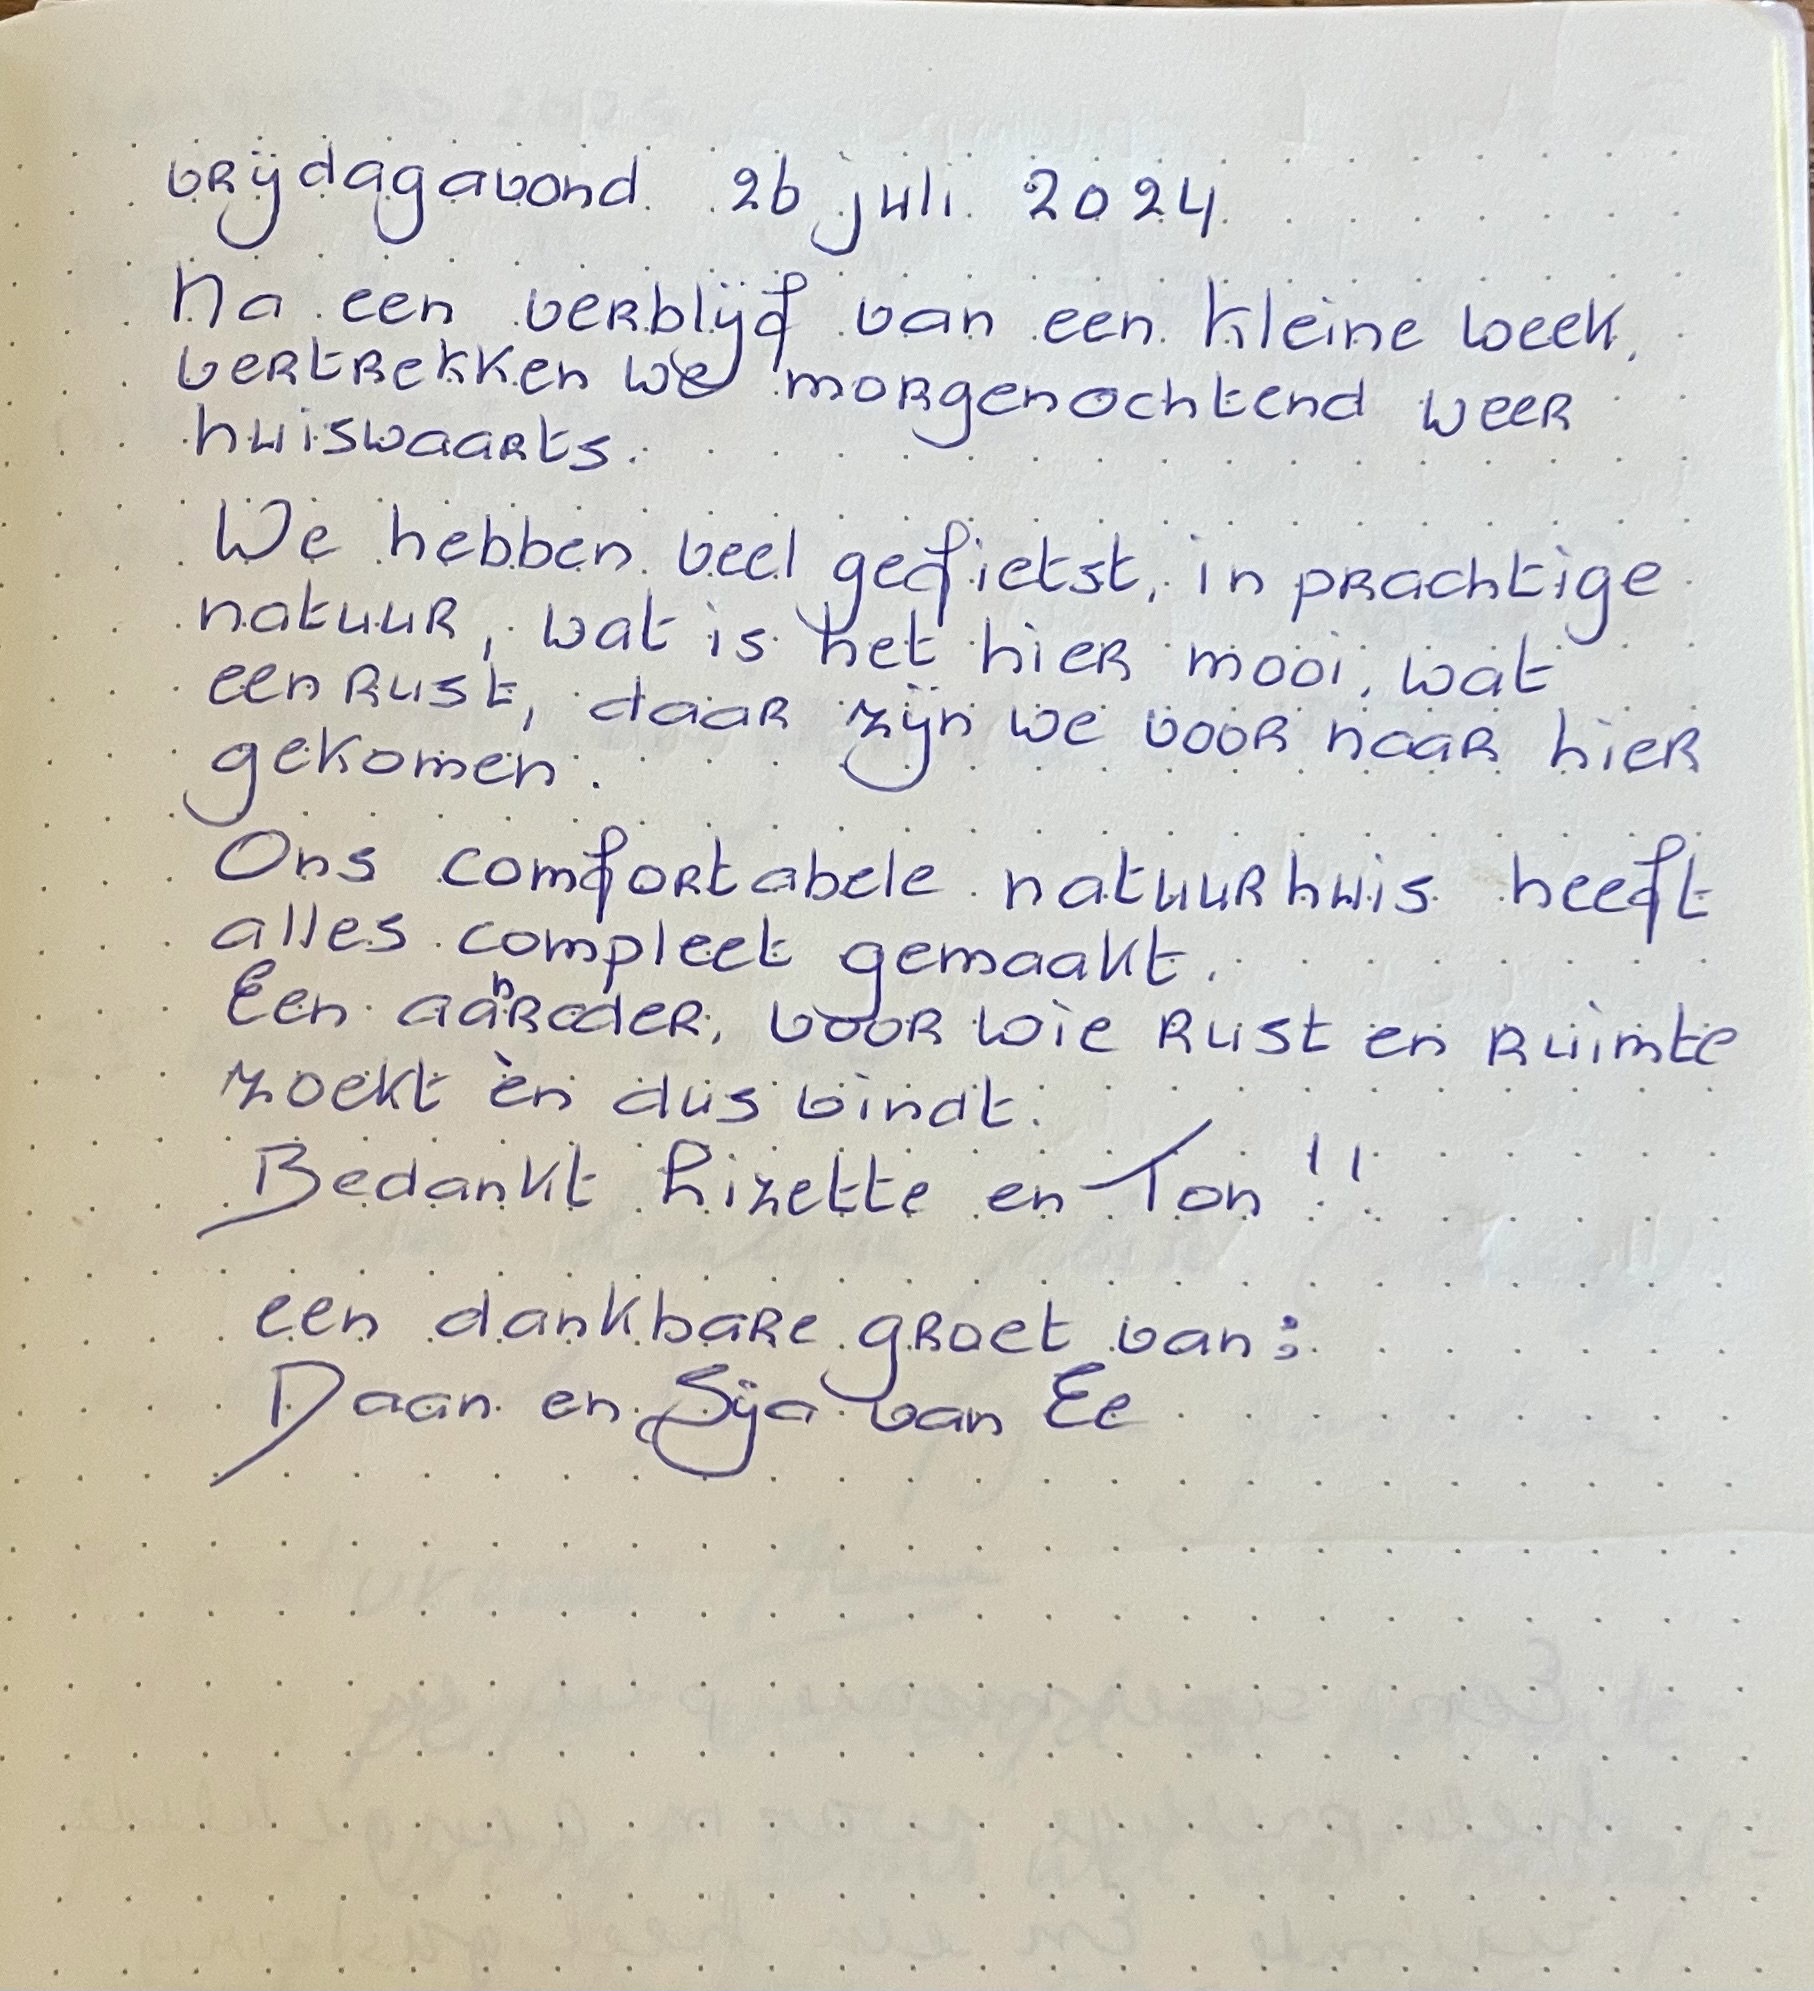 vrijdagavond 26 juli 2024
Na een verblijf van een kleine week,
vertrekken we morgenochtend weer
huiswaarts.
We hebben veel gefietst, in prachtige
natuur, wat is het hier mooi, wat
een rust, daar zijn we voor naar hier
gekomen.
Ons comfortabele natuurhuis heeft
alles compleet gemaakt.
Een aanrader, voor wie rust en ruimte
zoekt èn dus vindt.
Bedankt Lizette en Ton !!
een dankbare groet van:
Daan en Sija van Ee